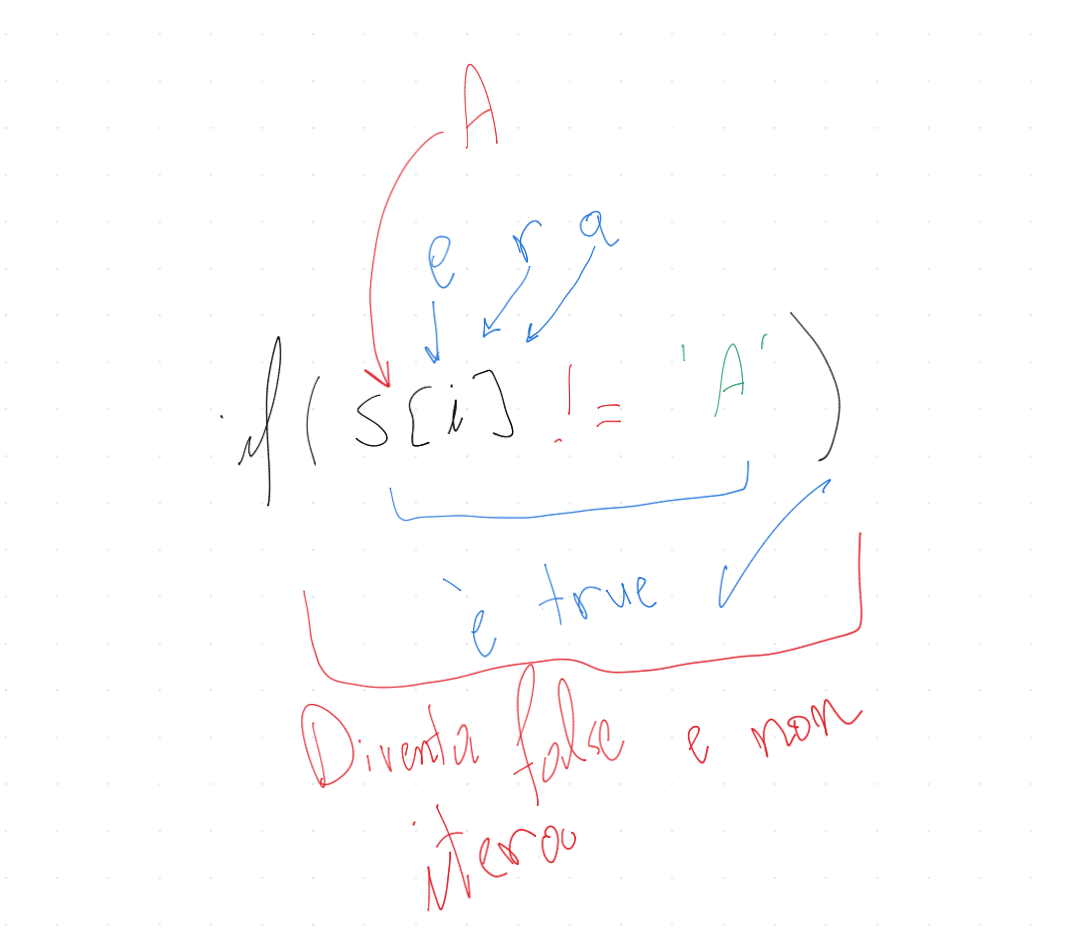 A
e r a
if( s[i] != 'A' )
è true
Diventa false e non
itero